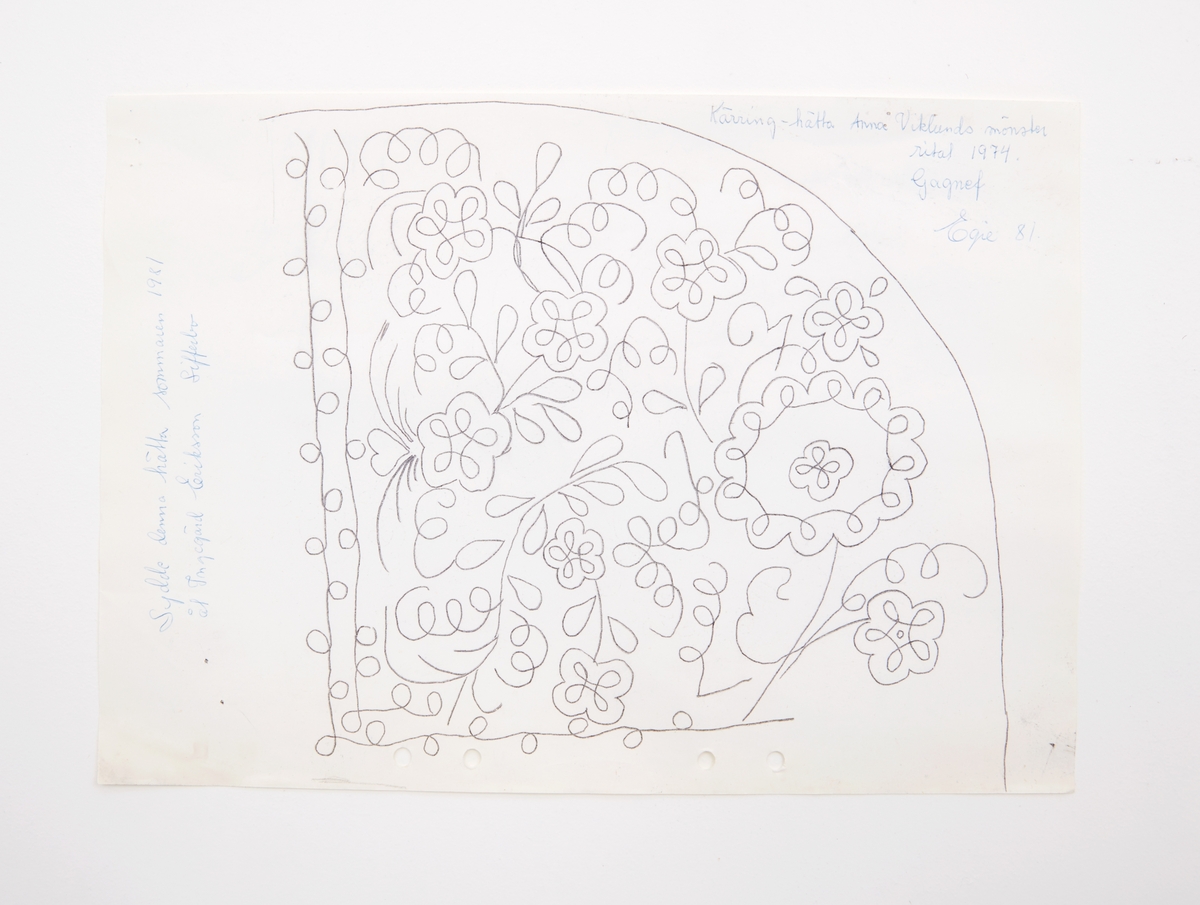 Kärring-hätta Anna Viklunds mönster
ritat 1974.
Gagnef
81.
Sydde denna hätta sommaren 1981
åt Ingegärd Eriksson Sifferbo